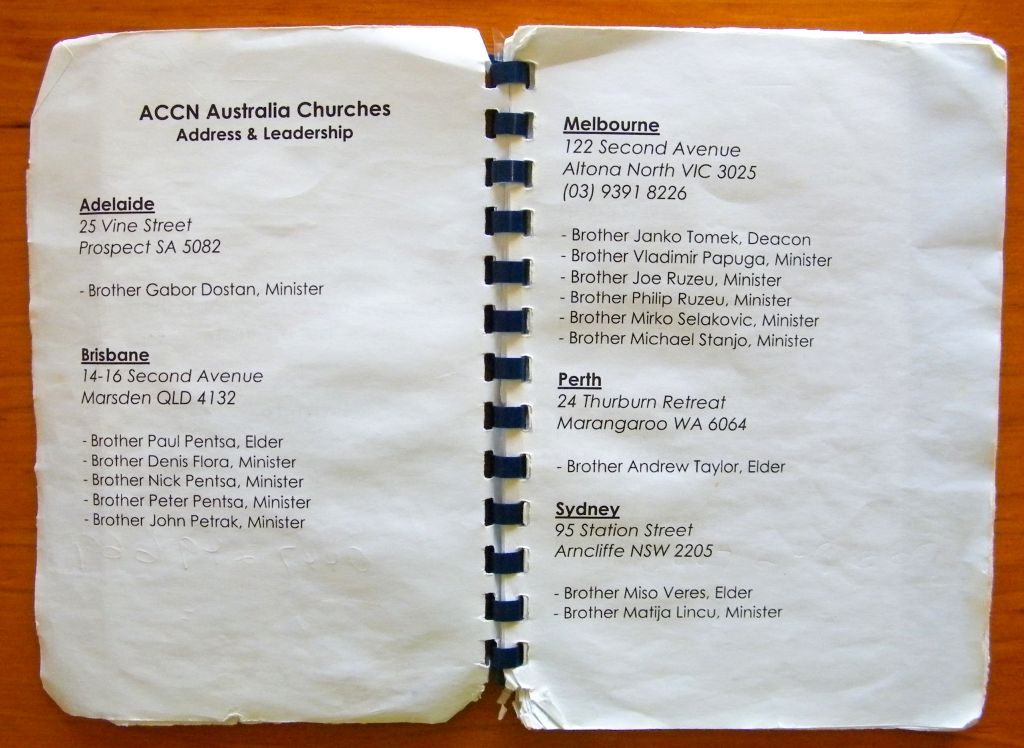 ACCN Australia Churches
Address & Leadership
Adelaide
25 Vine Street
Prospect SA 5082
- Brother Gabor Dostan, Minister
Brisbane
14-16 Second Avenue
Marsden QLD 4132
- Brother Paul Pentsa, Elder
- Brother Denis Flora, Minister
- Brother Nick Pentsa, Minister
- Brother Peter Pentsa, Minister
- Brother John Petrak, Minister
Melbourne
122 Second Avenue
Altona North VIC 3025
(03) 9391 8226
- Brother Janko Tomek, Deacon
- Brother Vladimir Papuga, Minister
- Brother Joe Ruzeu, Minister
- Brother Philip Ruzeu, Minister
- Brother Mirko Selakovic, Minister
- Brother Michael Stanjo, Minister
Perth
24 Thurburn Retreat
Marangaroo WA 6064
- Brother Andrew Taylor, Elder
Sydney
95 Station Street
Arncliffe NSW 2205
- Brother Miso Veres, Elder
- Brother Matija Lincu, Minister